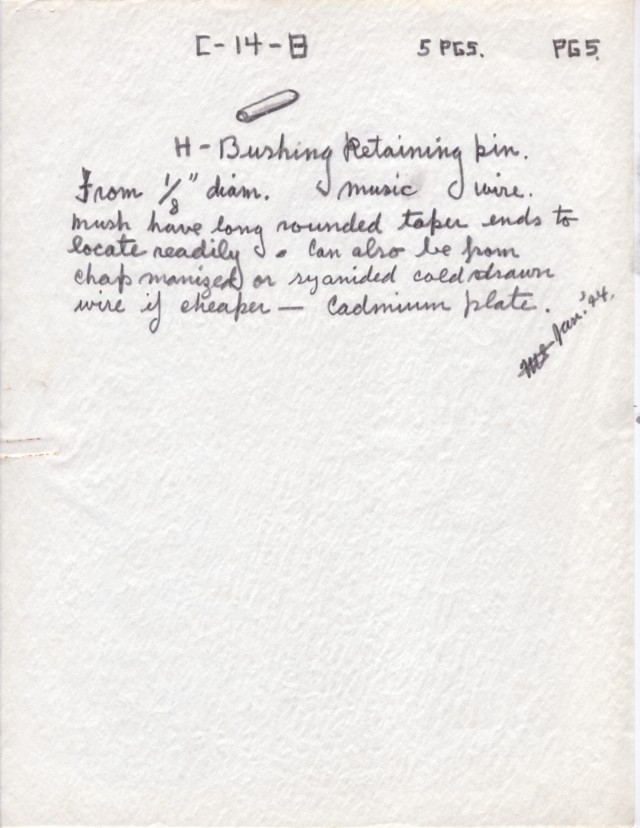 C-14-B 5 PGS. PG 5.
H - Bushing Retaining pin.
From 1/8" diam. music wire.
mush have long rounded taper ends to
locate readily. Can also be from
chapmanized or syanided cold drawn
wire if cheaper — Cadmium plate.
Jan. '44.